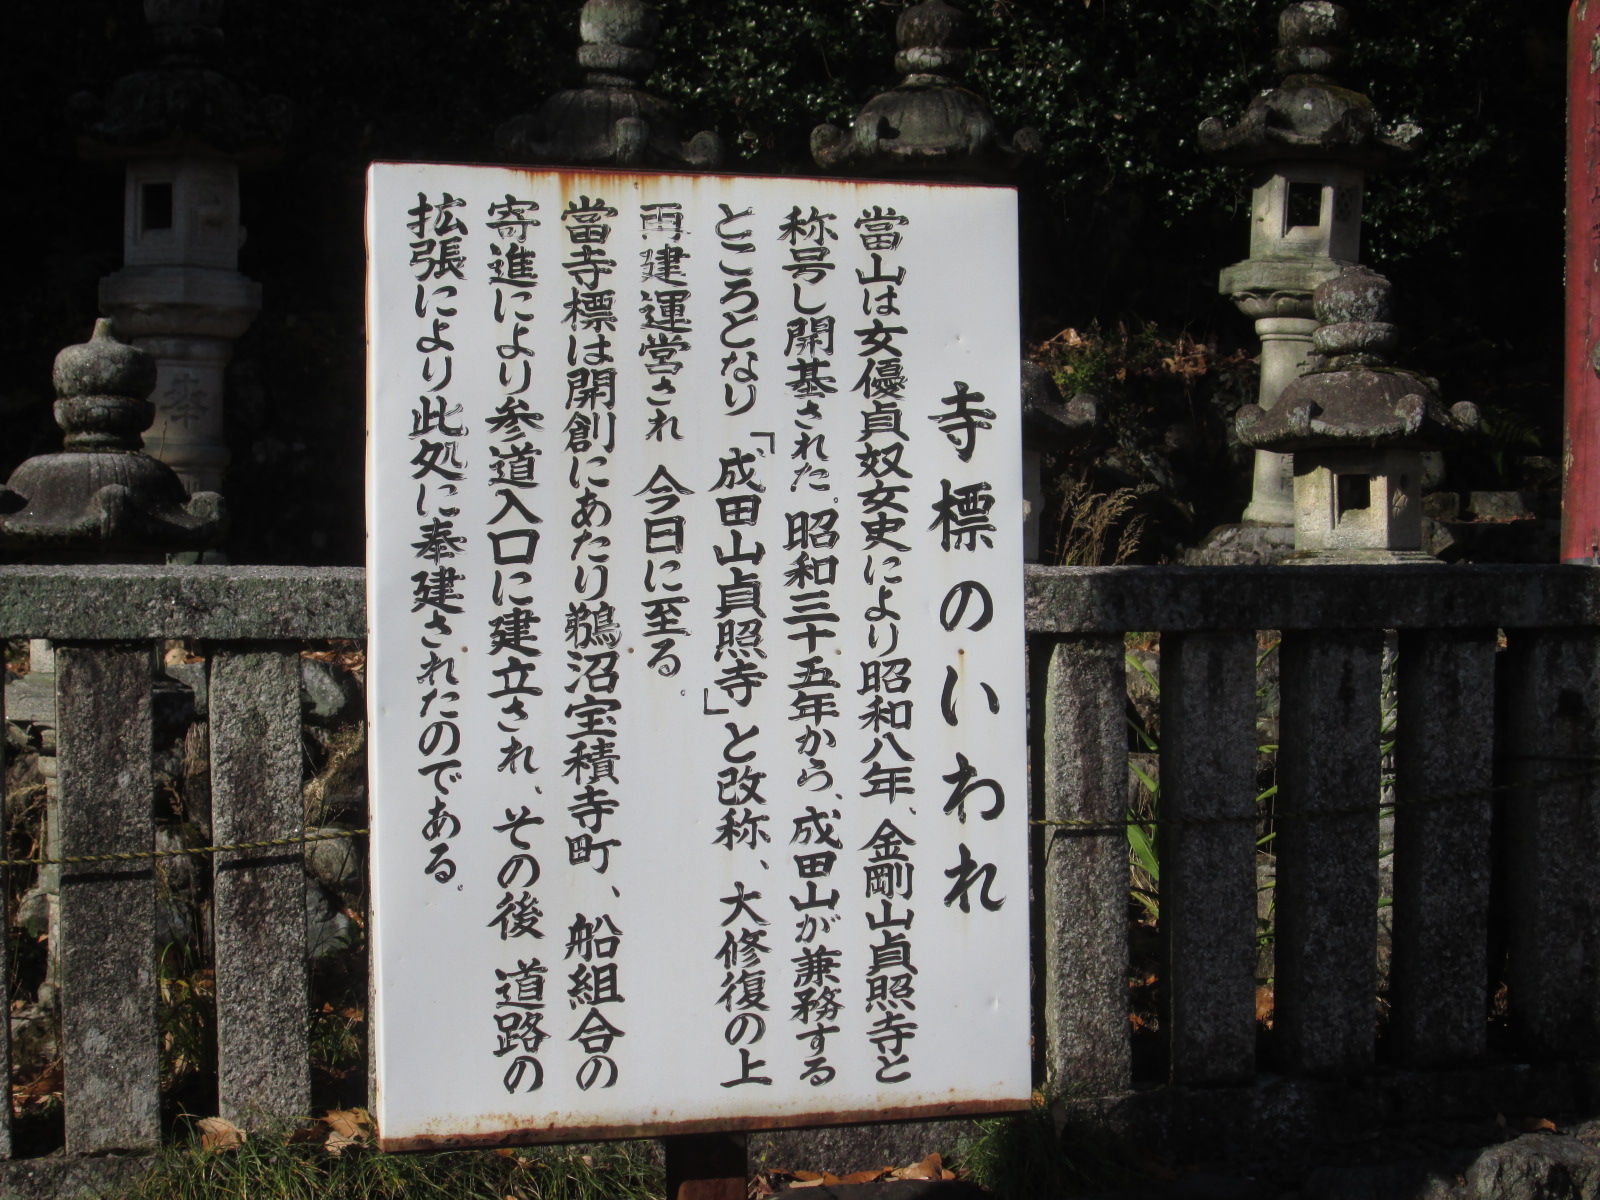 寺標のいわれ
當山は女優貞奴女史により昭和八年、金剛山貞照寺と
称号し開基された。昭和三十五年から、成田山が兼務する
ところとなり「成田山貞照寺」と改称、大修復の上
再建運営され 今日に至る。
當寺標は開創にあたり鵜沼宝積寺町、船組合の
寄進により参道入口に建立され、その後 道路の
拡張により此処に奉建されたのである。
奉